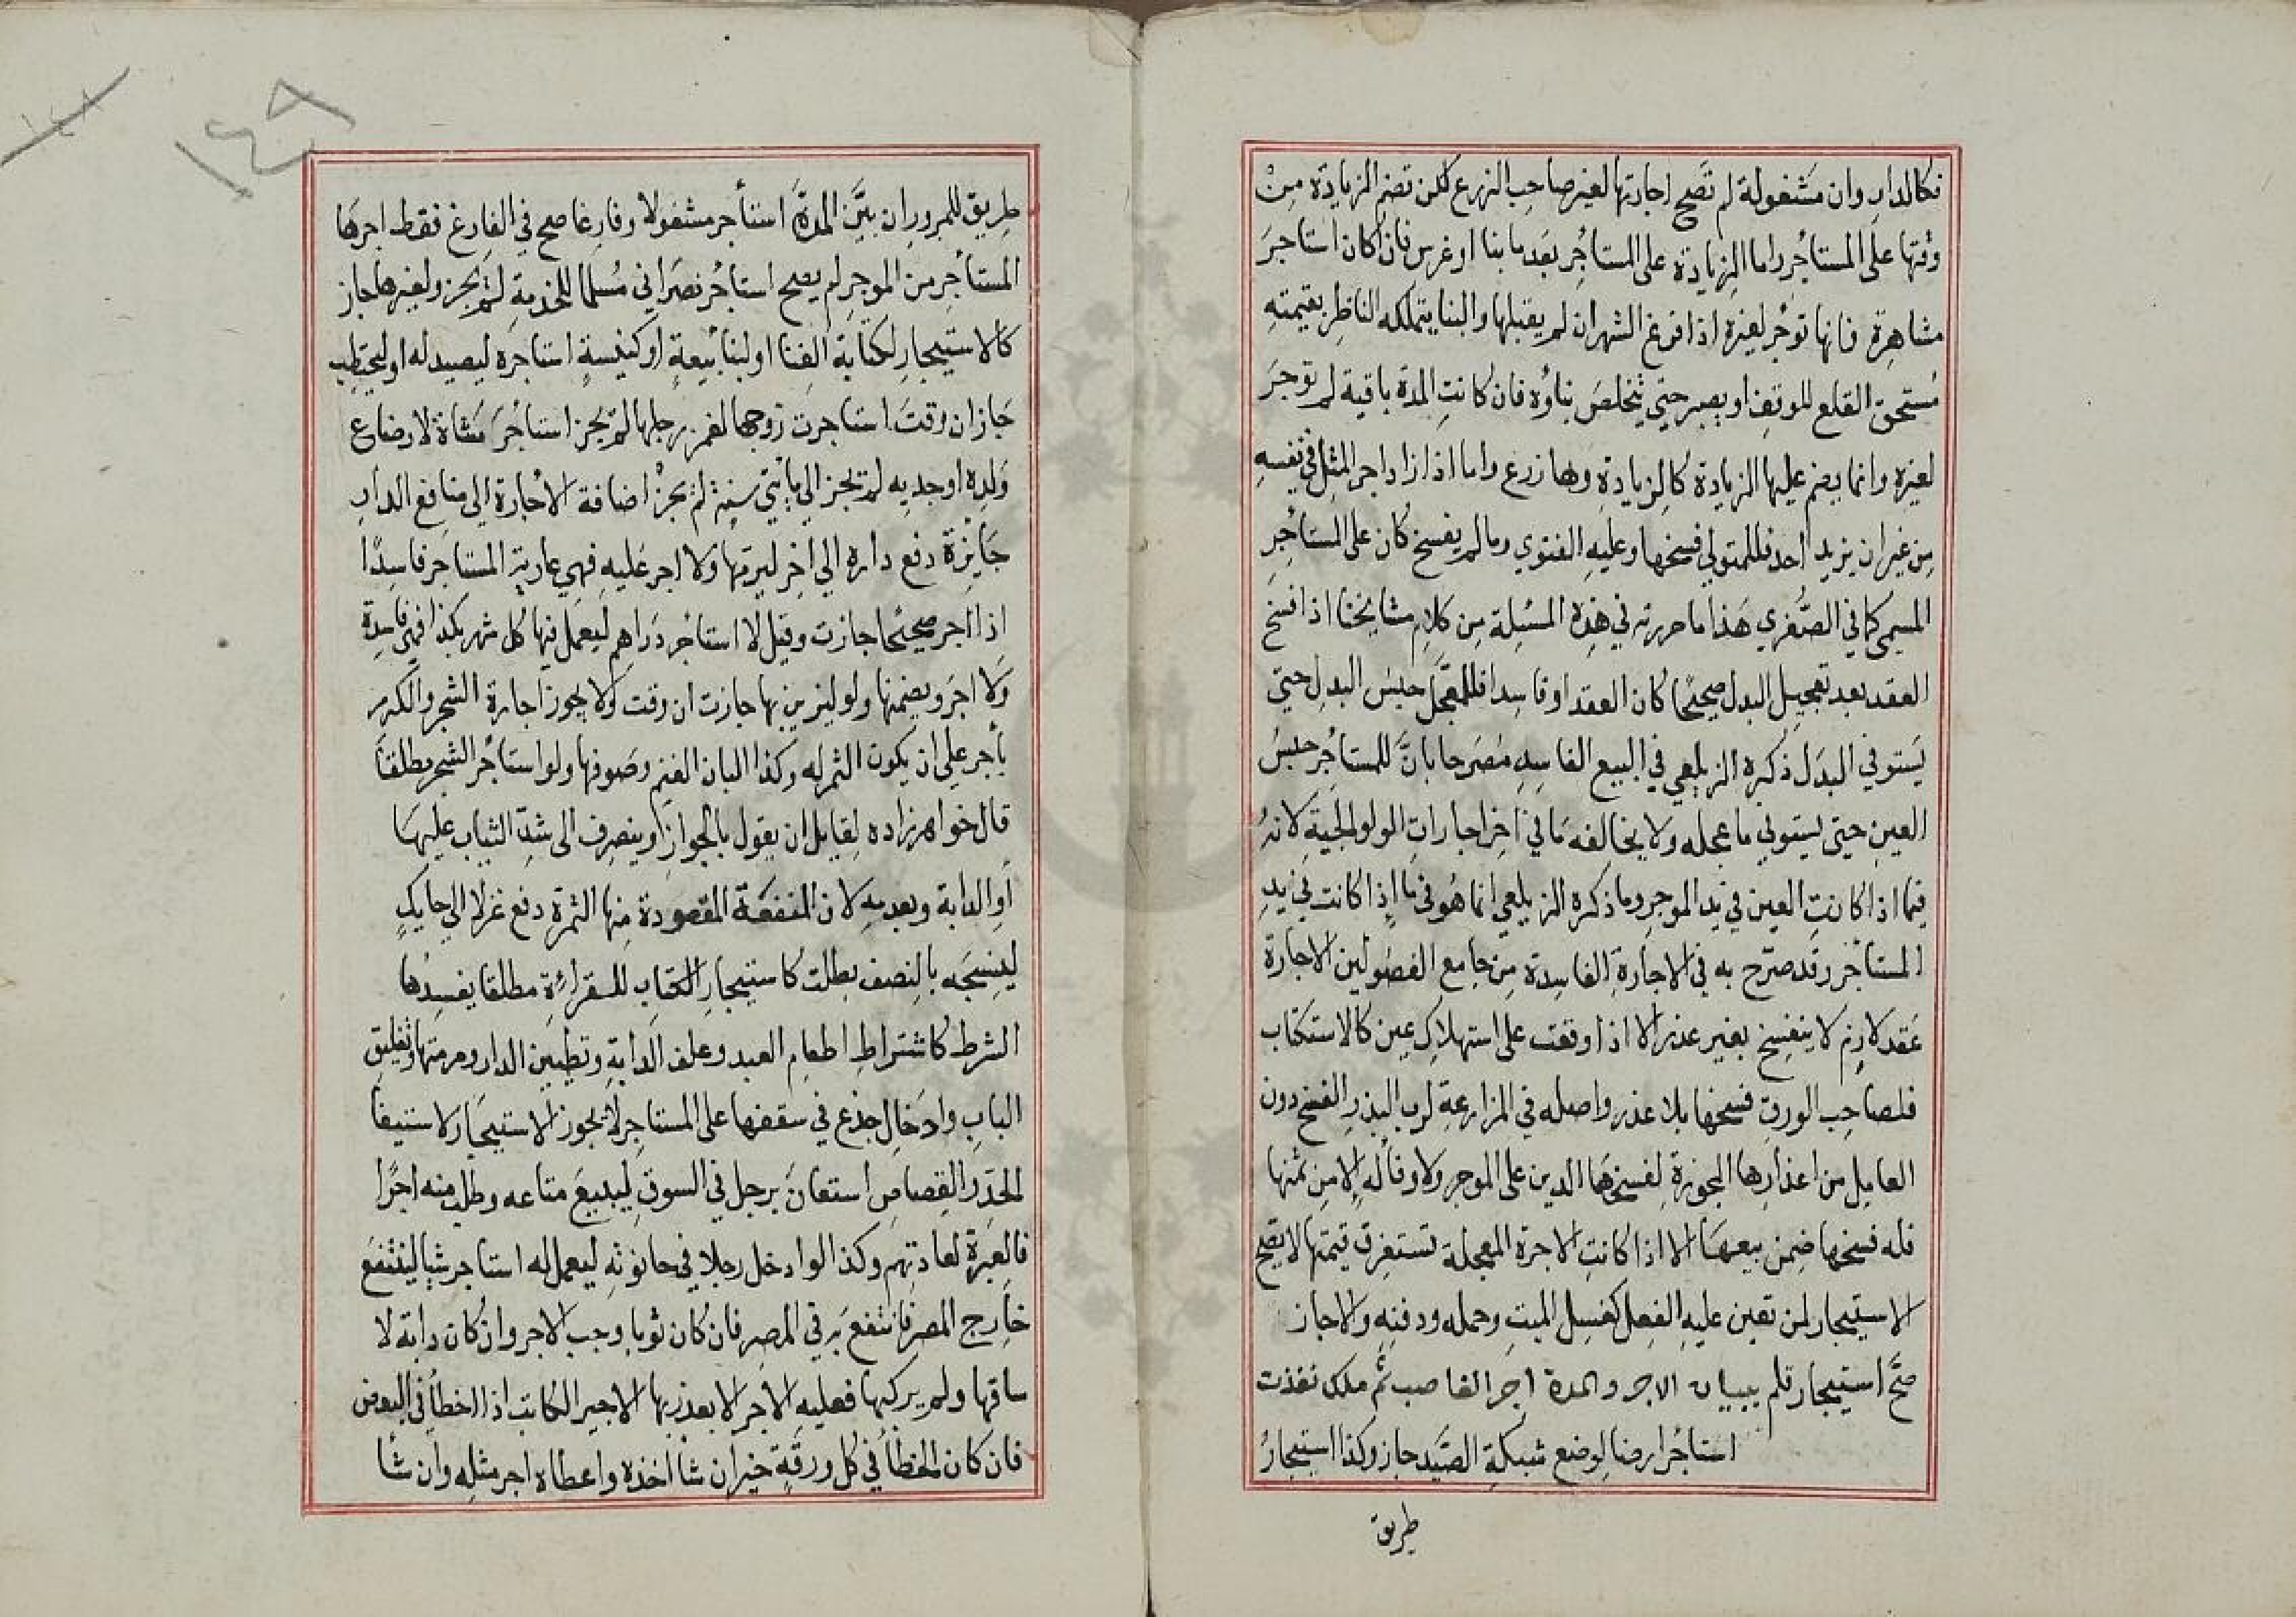 فكالدار وان مشغولة لم تصح اجارتها لغير صاحب الزرع لكن تضم الزيادة من
وقتها على المستأجر واما الزيادة على المستأجر بعد ما بنا او غرس فان كان استاجر
مشاهرة فانها توجر لغيره اذا فرغ الشهر ان لم يقبلها والبنا يتملكه الناظر بقيمته
مستحق القلع للوقف او يصبر حتي يتخلص بناؤه فان كانت المدة باقية لم توجر
لغيره وانما يضم عليها الزيادة كالزيادة وبها زرع واما اذا زاد اجر المثل في نفسه
من غير ان يزيد احد فللمتولي فسخها وعليه الفتوي وما لم يفسخ كان على المستأجر
المسمى كما في الصغري هذا ما حررته في هذه المسئلة من كلام مشايخنا اذا فسخ
العقد بعد تعجيل البدل صحيحا كان العقد او فاسدا فللمعجل حبس البدل حتي
يستوفي البدل ذكره الزيلعي في البيع الفاسد مصرحا بان للمستأجر حبس
العين حتى يستوفي ما عجله ولا يخالفه ما في اخر اجارات الولوالجية لانه
فيما اذا كانت العين في يد الموجر وما ذكره الزيلعي انما هو في ما اذا كانت في يد
المستأجر وقد صرح به في الاجارة الفاسدة من جامع الفصولين الاجارة
عقد لازم لا ينفسخ بغير عذر الا اذا وقعت على استهلاك عين كالاستكتاب
فلصاحب الورق فسخها بلا عذر واصله في المزارعة لرب البذر الفسخ دون
العامل من اعذارها المجوزة لفسخها الدين على الموجر ولا وفا له الا من ثمنها
فله فسخها ضمن بيعها الا اذا كانت الاجرة المعجلة تستغرق قيمتها لا يصح
الاستيجار لمن تعين عليه الفعل كغسل الميت وحمله ودفنه والا جاز
صح استيجار قلم ببيان الاجر والمدة اجر الغاصب ثم ملك نفذت
استاجر ارضا لوضع شبكة الصيد جاز وكذا استيجار
طريق
١٤٨
١٤٨
طريق للمرور ان بين المدة استأجر مشغولا وفارغا صح في الفارغ فقط اجرها
المستأجر من الموجر لم يصح استاجر نصراني مسلما للخدمة لم يجز ولغيرها جاز
كالاستيجار لكتابة الغنا او لبنا بيعة او كنيسة استاجره ليصيد له او ليحتطب
جاز ان وقت استاجرت زوجها لغمز رجلها لم يجز استأجر مشاة لارضاع
ولده او جديه لم يجز الي مايتي سنة لم يجز اضافة الاجارة الي منافع الدار
جايزة دفع داره الي اخر ليرمها ولا اجر عليه فهي عارية المستاجر فاسدا
اذا اجر صحيحا جازت وقيل لا استأجر دراهم ليعمل فيها كل شهر بكذا فهي فاسدة
ولا اجر ويضمنها ولو ليزين بها جازت ان وقت ولا يجوز اجارة الشجر والكرم
بأجر علي ان يكون الثمر له وكذا البان الغنم وصوفها ولو استأجر الشجر مطلقا
قال خواهرزاده لقايل ان يقول بالجواز وينصرف الى شد الثياب عليها
او الدابة وبعدمه لان المنفعة المقصودة منها الثمرة دفع غزلا الي حايك
لينسجه بالنصف بطلت كاستيجار الكتاب للقرائة مطلقا يفسدها
الشرط كاشتراط اطعام العبد وعلف الدابة وتطيين الدار ومرمتها وتغليق
الباب وادخال جذع في سقفها على المستاجر لا يجوز الاستيجار لاستيفا
الحد والقصاص استعان برجل في السوق ليبيع متاعه وطلب منه اجرا
فالعبرة لعادتهم وكذا لو ادخل رجلا في حانوته ليعمل له استاجر شيا لينتفع
خارج المصر فانتفع به في المصر فان كان ثوبا وجب الاجر وان كان دابة لا
ساقها ولم يركبها فعليه الاجر الا بعذر بها الاجير الكاتب اذا اخطأ في البعض
فان كان الخطأ في كل ورقة خير ان شا اخذه واعطاه اجر مثله وان شا